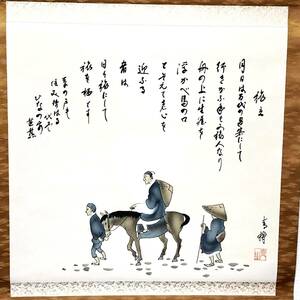 旅立
月日は百代の過客にして
行きかふ年も又旅人なり
舟の上に生涯を
浮かべ馬の口
とらえて老いを
迎ふる
者は
日々旅にして
旅を栖とす
草の戸も
住み替はる
代ぞ
ひなの家
芭蕉